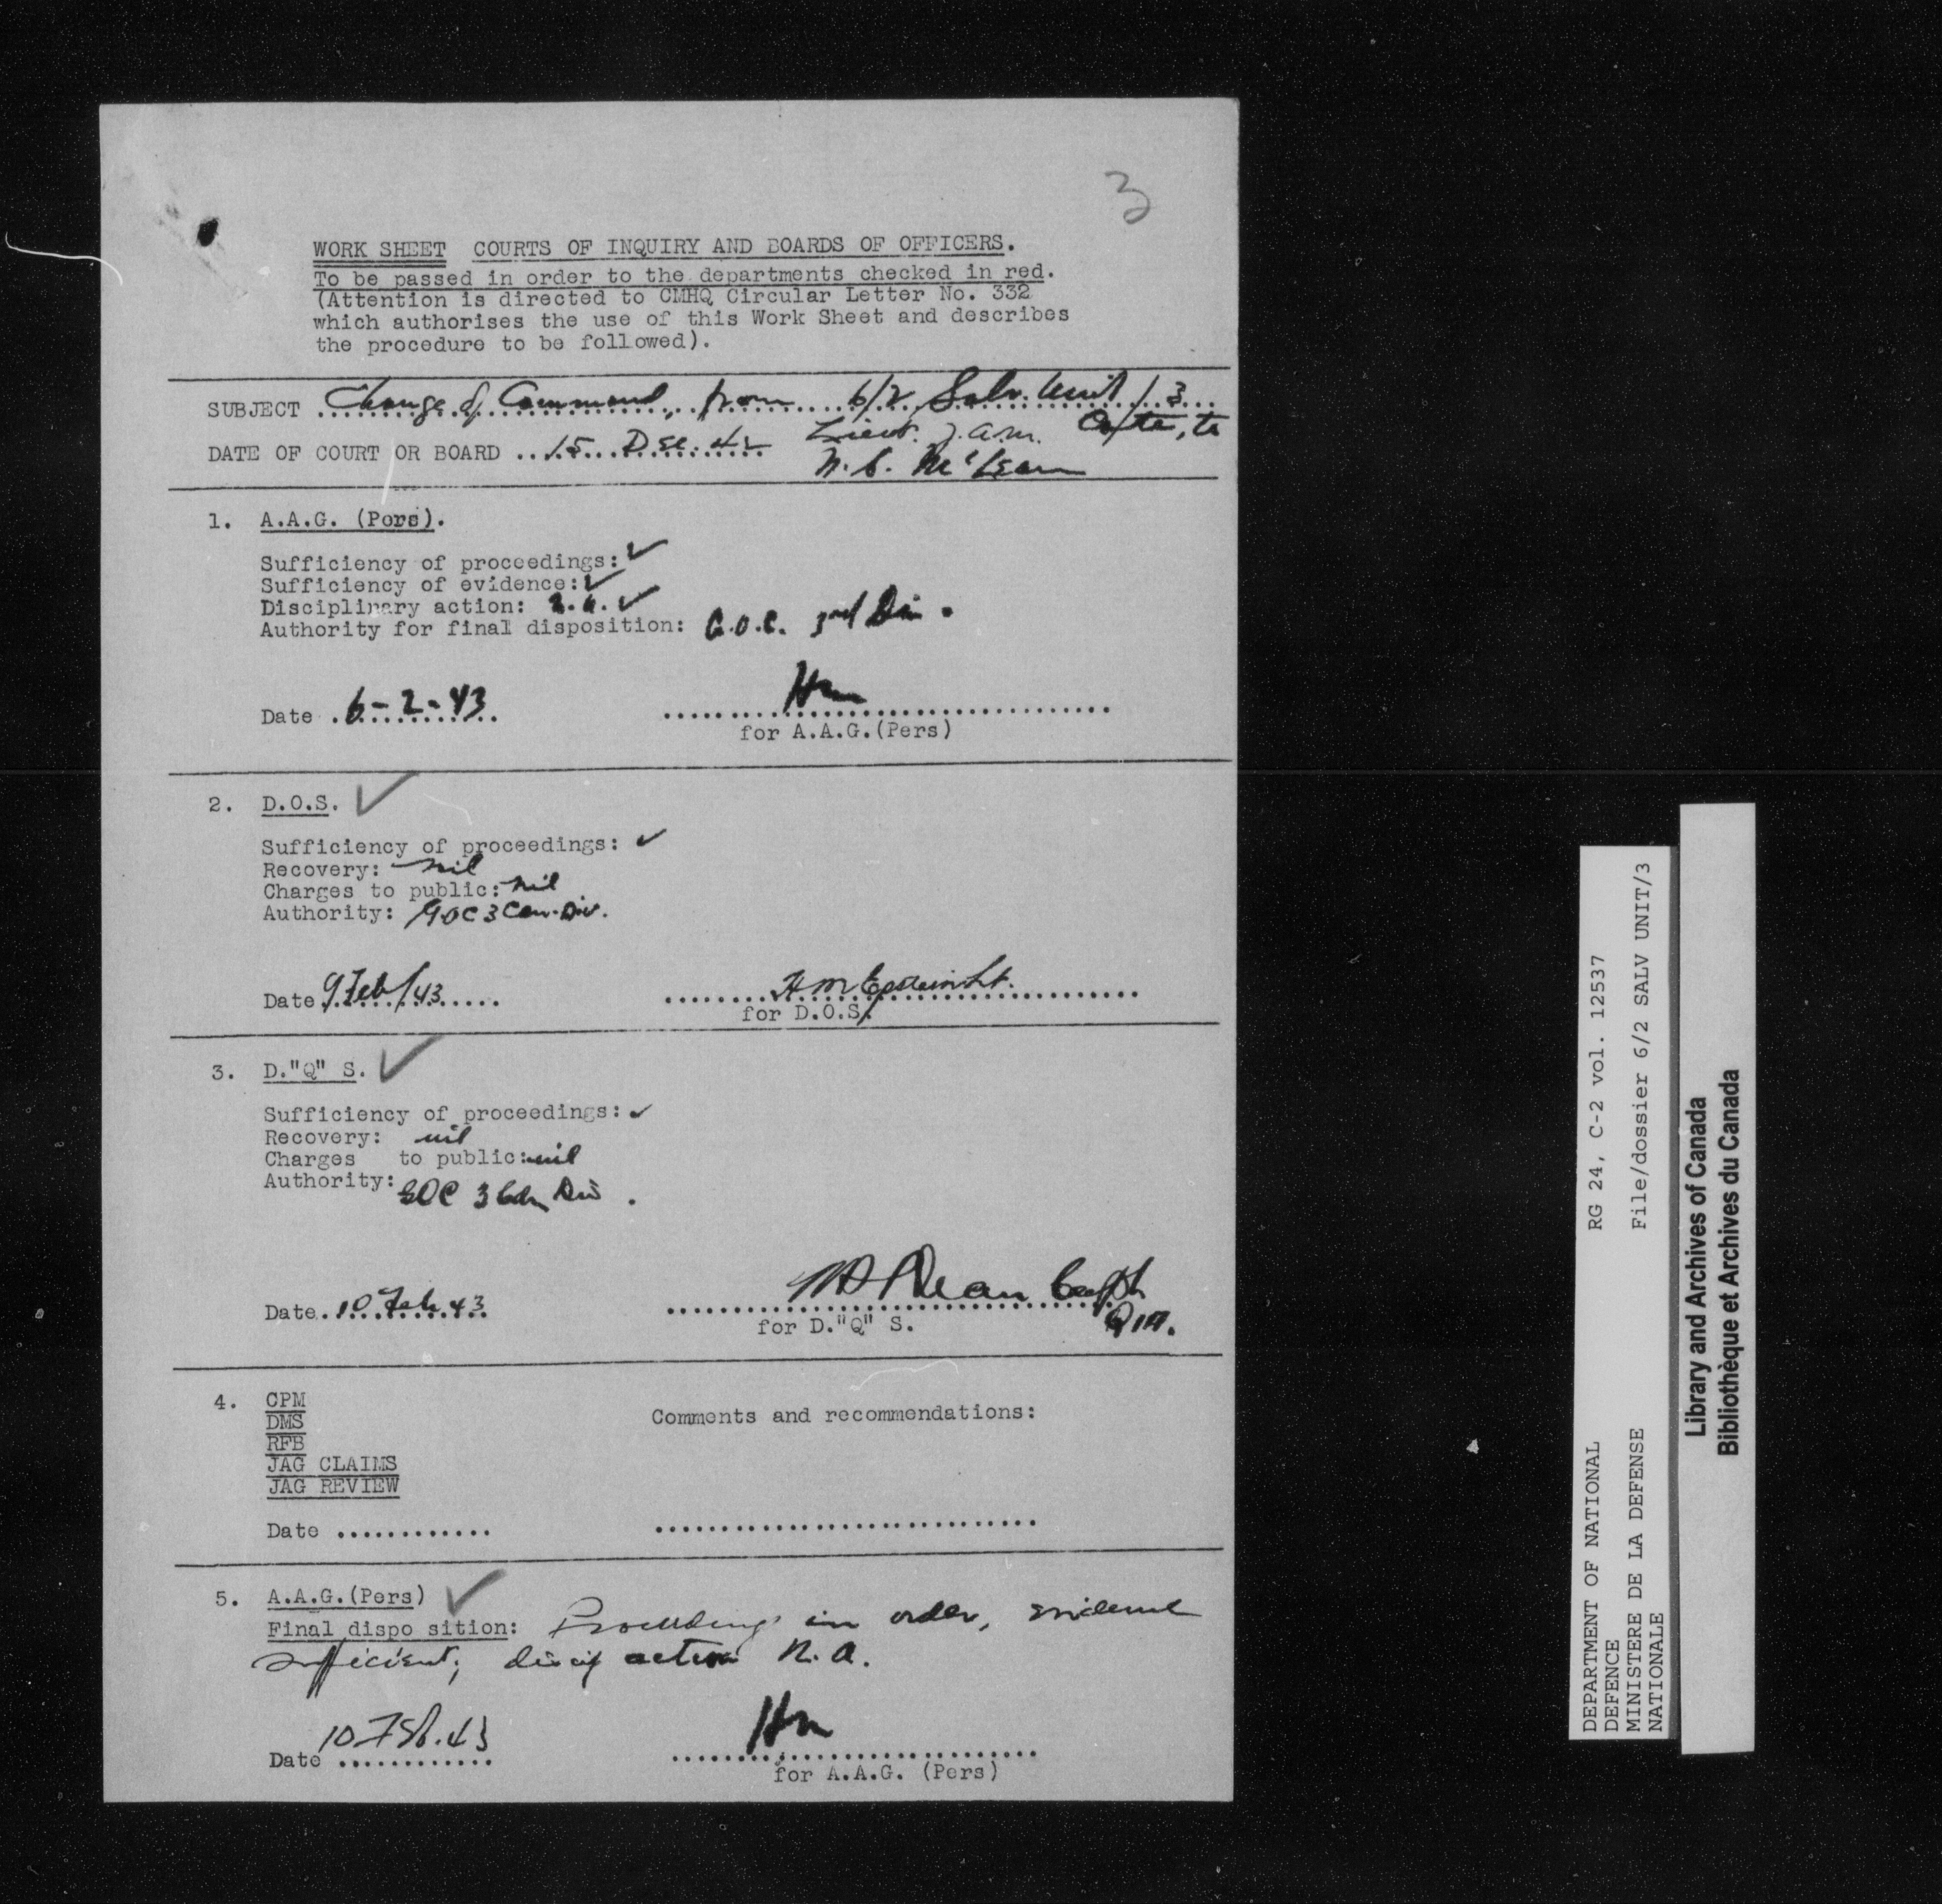 3
WORK SHEET COURTS OF INQUIRY AND BOARDS OF OFFICERS.
To be passed in order to the departments checked in red.
(Attention is directed to CMHQ Circular Letter No. 332
which authorises the use of this Work Sheet and describes
the procedure to be followed).
SUBJECT Change of Command, from 6/2 Salv. Unit/3
DATE OF COURT OR BOARD 15 Dec. 42 Lieut. J.A.M.
N.C. McLean
1. A.A.G. (Pers).
Sufficiency of proceedings: ✓
Sufficiency of evidence: ✓
Disciplinary action: ✓
Authority for final disposition: G.O.C. 3rd Div.
Date 6-2-43
for A.A.G.(Pers)
2. D.O.S. ✓
Sufficiency of proceedings: ✓
Recovery: nil
Charges to public: nil
Authority: GOC 3 Can. Div.
Date 9 Feb/43 H M Epstein Lt.
for D.O.S.
3. D."Q" S. ✓
Sufficiency of proceedings: ✓
Recovery: nil
Charges to public: nil
Authority: GOC 3 Cdn Div.
Date 10 Feb 43 Capt
for D."Q" S.
4. CPM
DMS
RFB
JAG CLAIMS
JAG REVIEW
Comments and recommendations:
Date
5. A.A.G.(Pers) ✓
Final dispo sition: Proceedings in order, evidence
sufficient; discip action N.A.
Date 10 Feb. 43
for A.A.G. (Pers)
DEPARTMENT OF NATIONAL
DEFENCE
MINISTERE DE LA DEFENSE
NATIONALE
RG 24, C-2 vol. 12537
File/dossier 6/2 SALV UNIT/3
Library and Archives of Canada
Bibliothèque et Archives du Canada